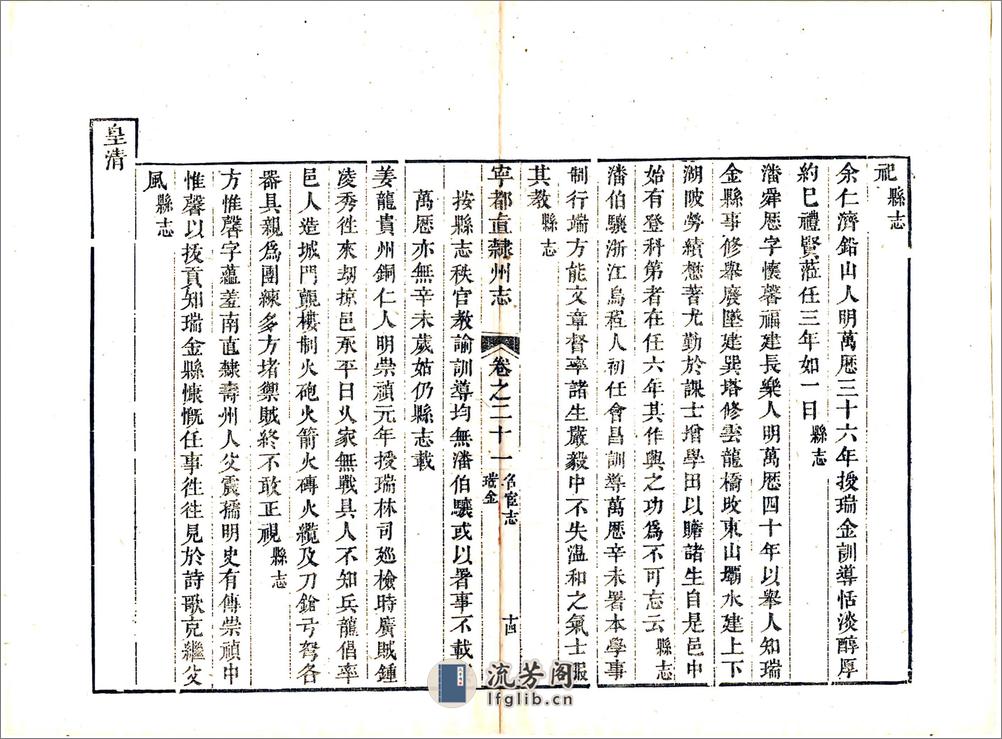 祀縣志
余仁濟鉛山人明萬厯三十六年授瑞金訓導恬淡醇厚
約巳禮賢蒞任三年如一日縣志
潘舜厯字懷馨福建長樂人明萬厯四十年以舉人知瑞
金縣事修舉廢墜建巽塔修雲龍橋改東山壩水建上下
湖陂勞績懋著尤勤於課士增學田以贍諸生自是邑中
始有登科第者在任六年其作興之功爲不可忘云縣志
潘伯驤浙江烏程人初任會昌訓導萬厯辛未署本學事
制行端方能文章督率諸生嚴毅中不失温和之氣士服
其教縣志
寧都直隷州志
卷之二十一
名宦志
瑞金
十四
按縣志秩官教諭訓導均無潘伯驤或以署事不載
萬厯亦無辛未歲姑仍縣志載
姜龍貴州銅仁人明崇禎元年授瑞林司廵檢時廣賊鍾
凌秀徃來刼掠邑承平日乆家無戰具人不知兵龍倡率
邑人造城門戲樓制火砲火箭火磚火纜及刀鎗弓弩各
器具親爲團練多方堵禦賊終不敢正視縣志
方惟馨字蘊蓋南直隷壽州人父震孺明史有傳崇禎中
惟馨以拔貢知瑞金縣慷慨任事徃徃見於詩歌克繼父
風縣志
皇清
流芳阁
lfglib.cn